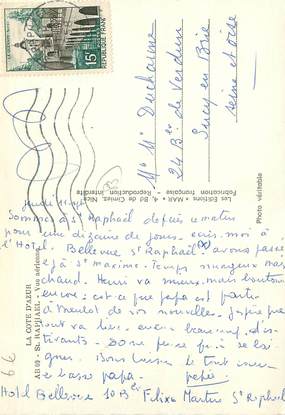 15F
REPUBLIQUE FRANÇAISE
Mr Mr Ducharne
24 Bd de Verdun
Sucy en Brie
Seine et Oise
Les Editions "MAR" - 4, Bd de Cimiez, Nice
Fabrication française - Reproduction interdite
Photo véritable
LA COTE D'AZUR
AB 69 - St. RAPHAEL - Vue aérienne
Jeudi 11
Sommes à St Raphaël depuis ce matin
pour une dizaine de jours. écris-moi à
l'Hotel Bellevue St Raphaël avons passé
à St maxime. Temps nuageux mais
chaud. Henri va mieux, mais boutonne
encore. est-ce que papa est parti
à Meulot de vos nouvelles. J'espère que
tout va bien. eux beaucoup
Bons baisers le tout
papa
Hotel Bellevue 10 Bd Felix Martin St Raphael